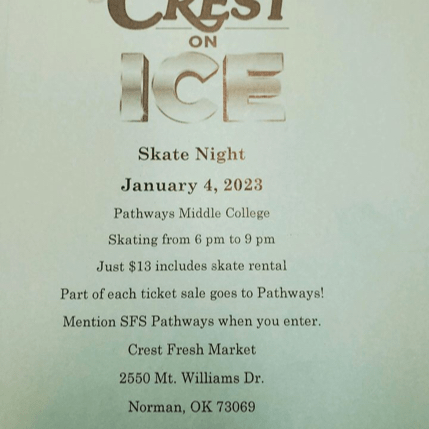 CREST
ON
ICE
Skate Night
January 4, 2023
Pathways Middle College
Skating from 6 pm to 9 pm
Just $13 includes skate rental
Part of each ticket sale goes to Pathways!
Mention SFS Pathways when you enter.
Crest Fresh Market
2550 Mt. Williams Dr.
Norman, OK 73069